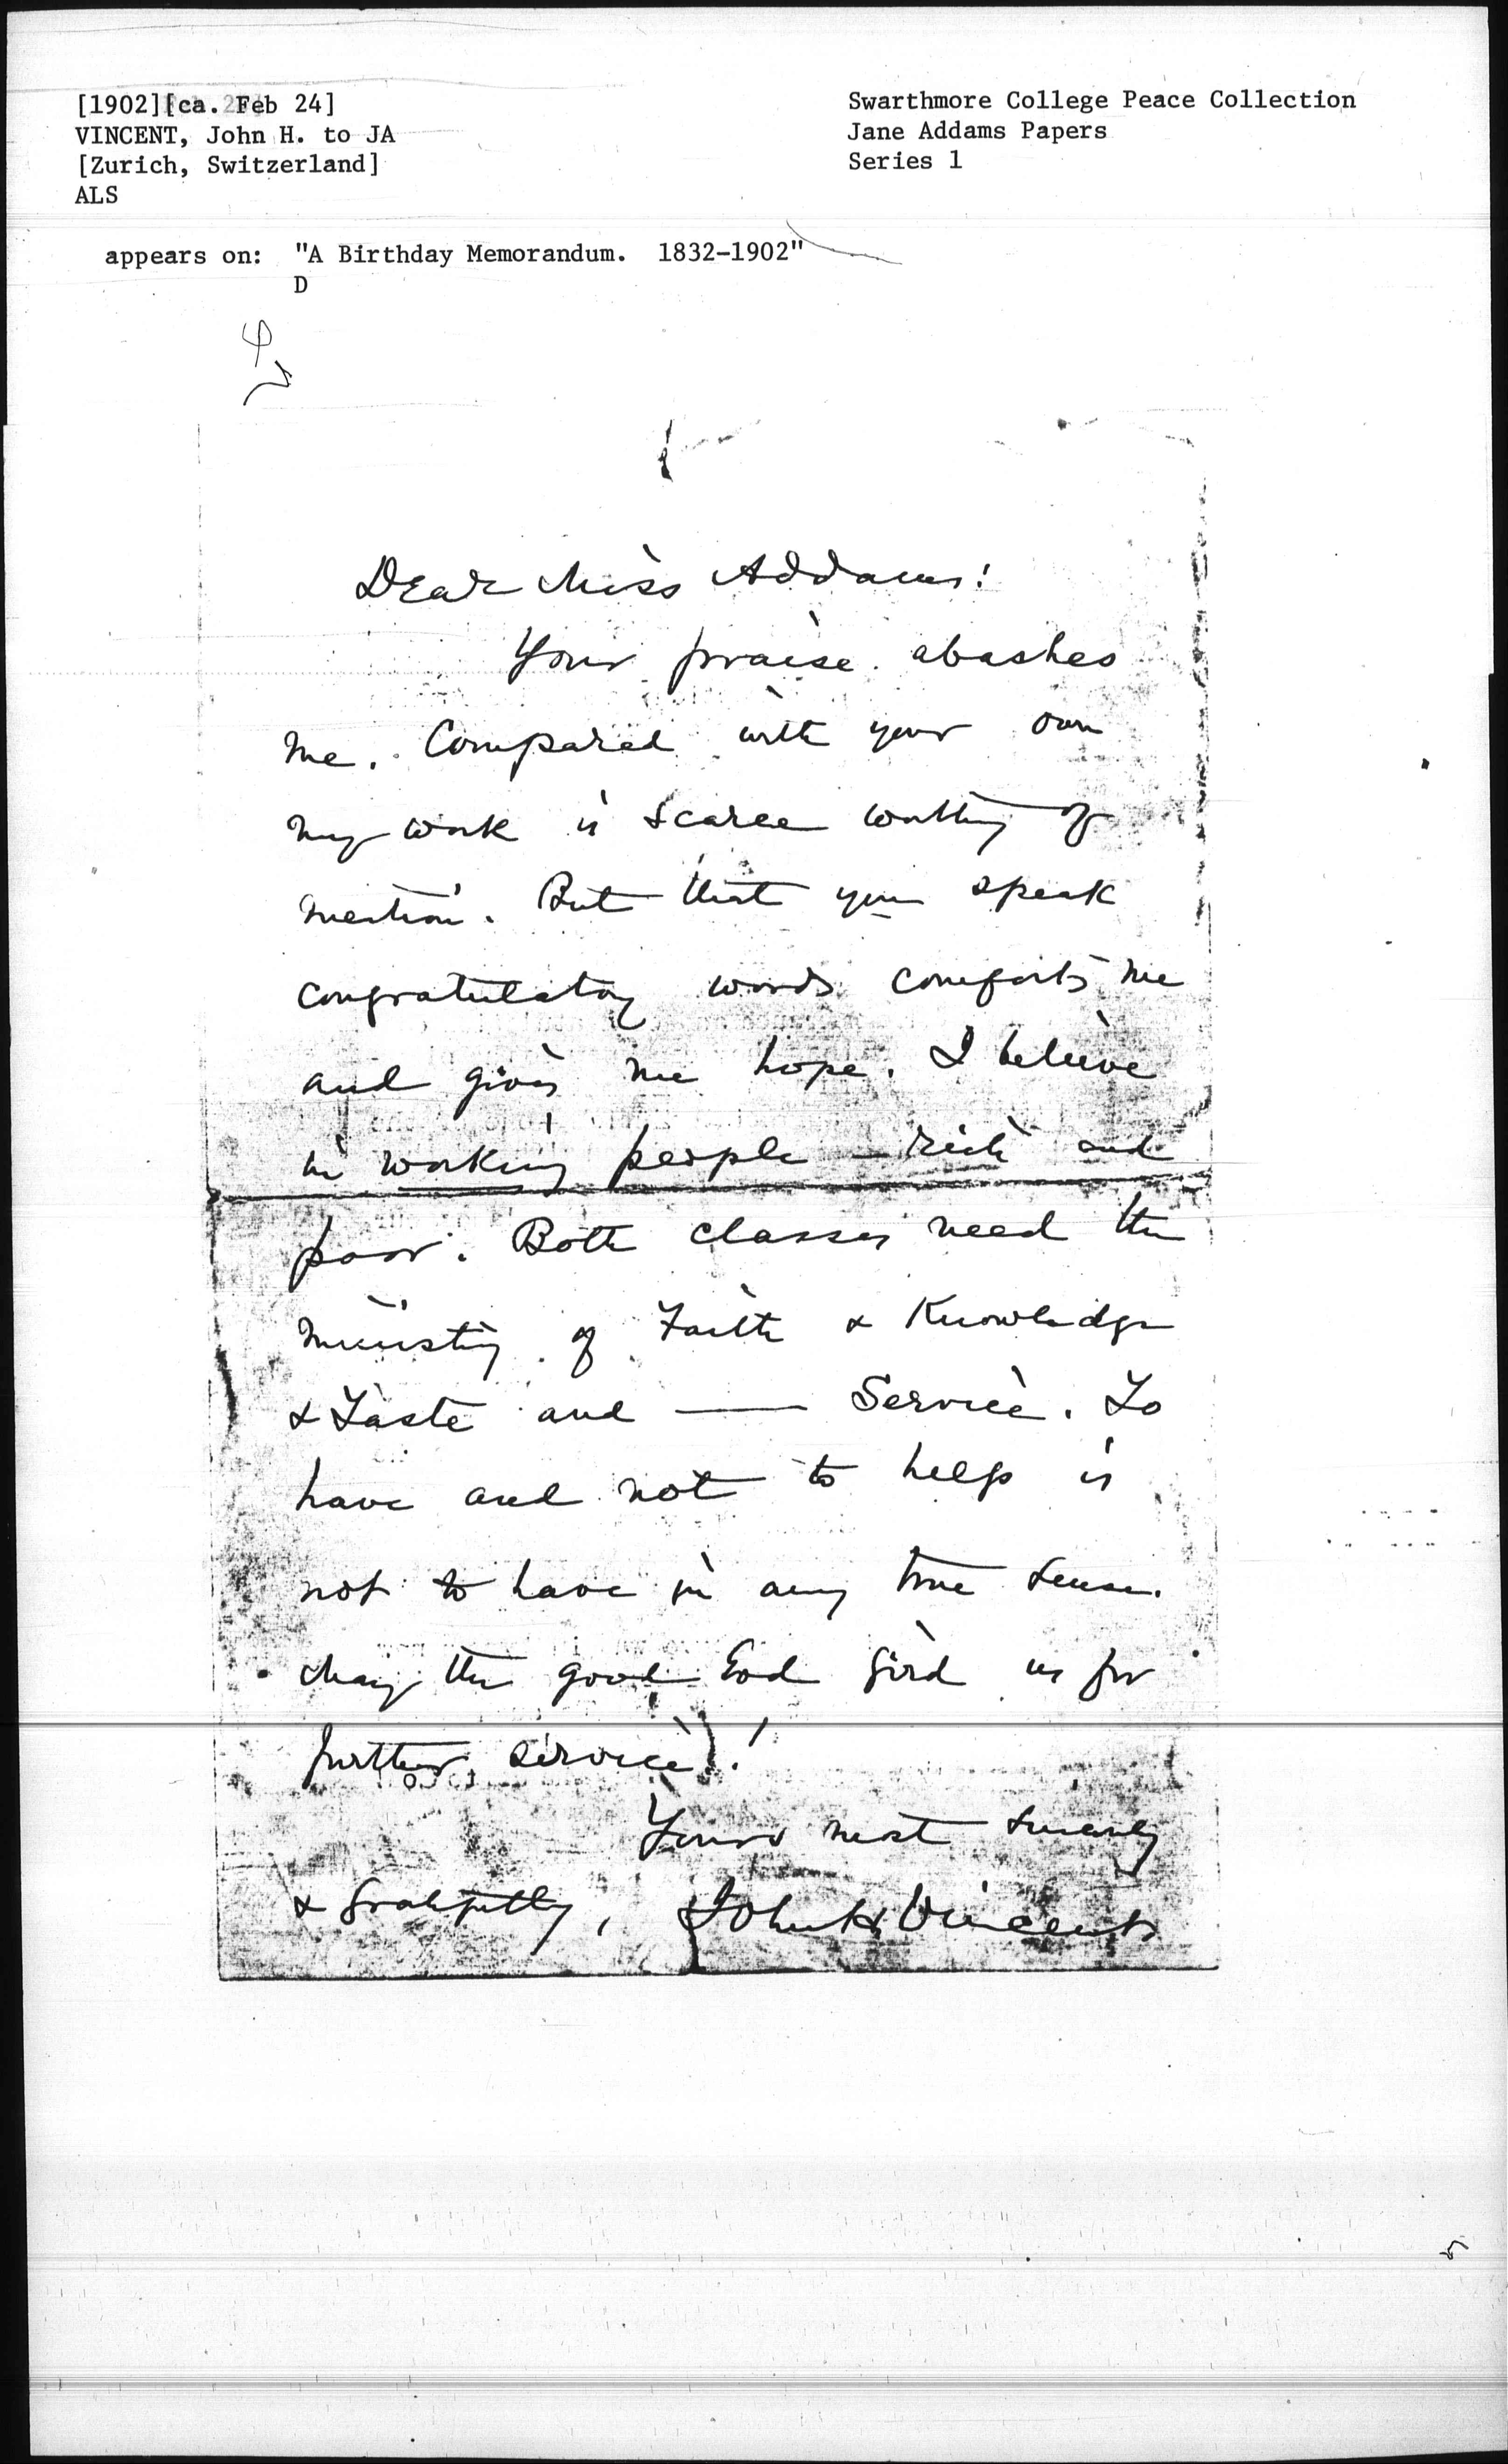 [1902][ca. Feb 24]
VINCENT, John H. to JA
[Zurich, Switzerland]
ALS
Swarthmore College Peace Collection
Jane Addams Papers
Series 1
appears on: "A Birthday Memorandum. 1832-1902"
D
Dear Miss Addams!
Your praise abashes
me. Compared with your own
my work is scarce worthy of
mention. But that you speak
congratulatory words comforts me
and gives me hope. I believe
in working people – rich and
poor. Both classes need the
ministry of Faith & Knowledge
& Taste and — Service. To
have and not to help is
not to have in any true sense.
May the good God gird us for
further service!
Yours most sincerely
& gratefully, John H. Vincent